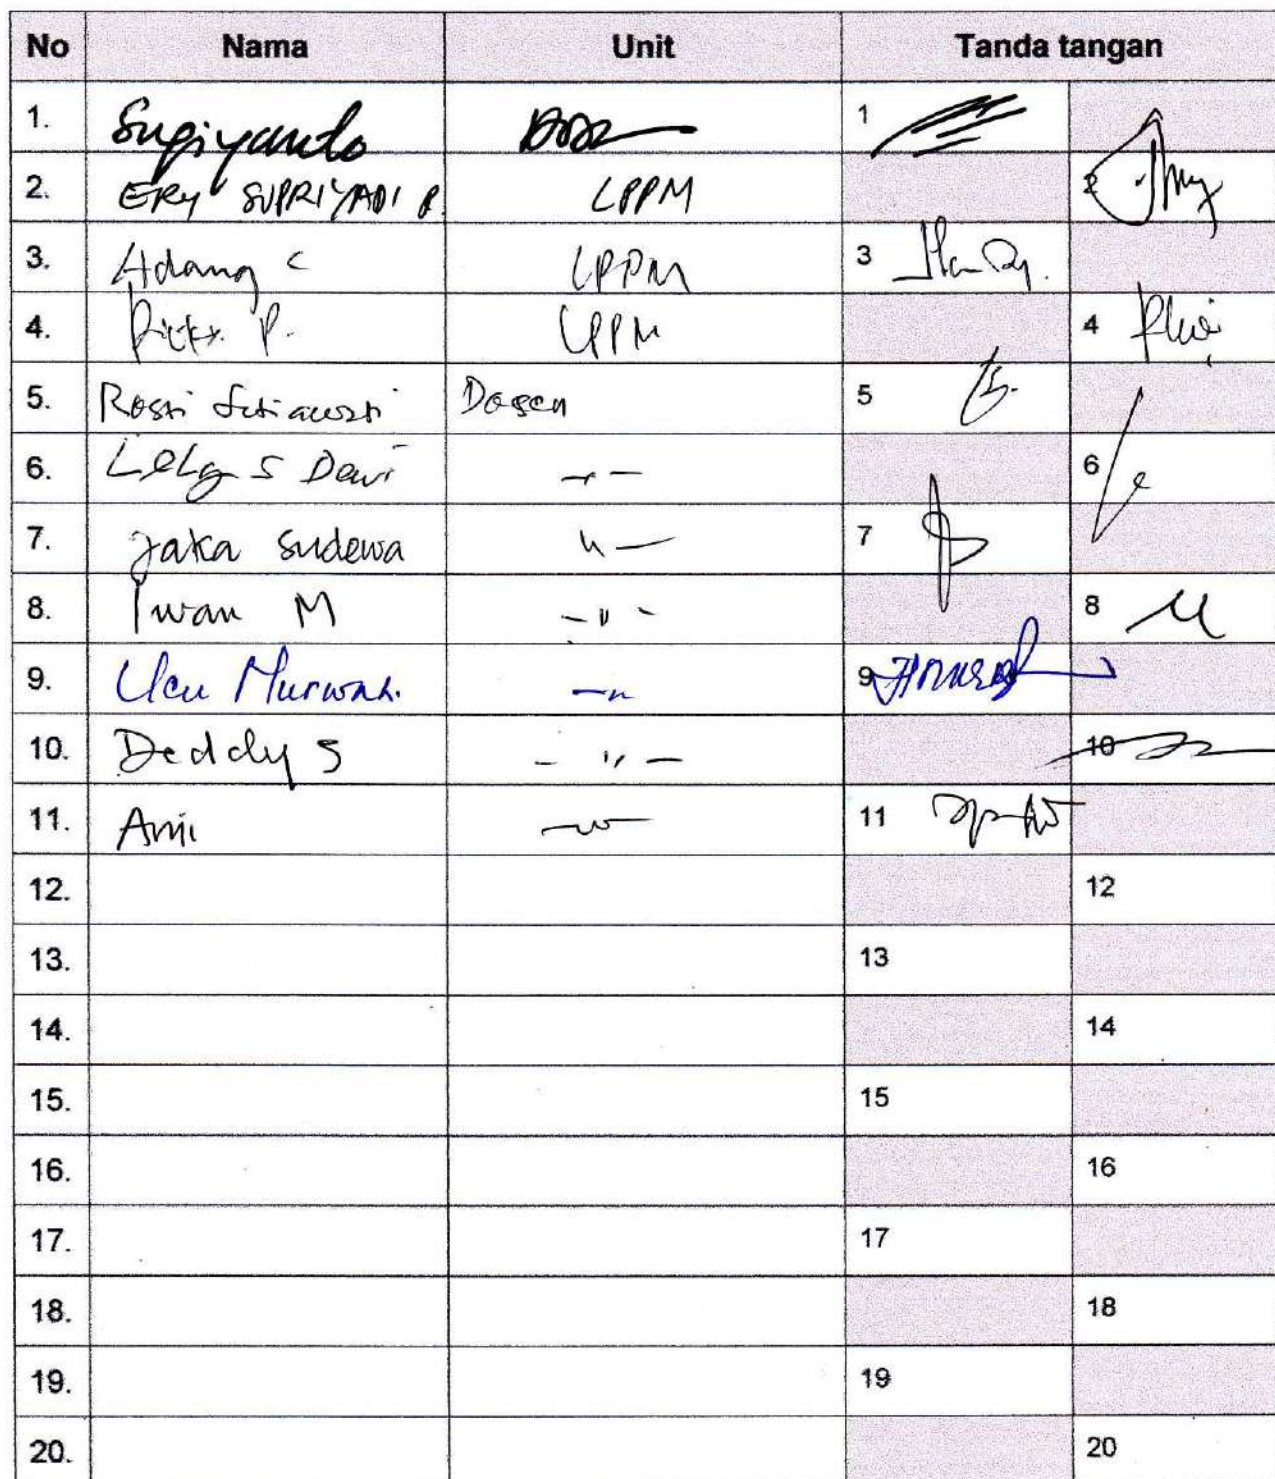 No Nama Unit Tanda tangan
1. Sugiyanto 1
2. ERY SUPRIYADI P. LPPM 2
3. Adang C LPPM 3
4. P. LPPM 4
5. Rosti Setiawati Dosen 5
6. Lely S Dewi - " - 6
7. Jaka Sudewa " - 7
8. Iwan M - " - 8
9. Ucu Murwah. - " 9
10. Deddy S - " - 10
11. Ami - " - 11
12. 12
13. 13
14. 14
15. 15
16. 16
17. 17
18. 18
19. 19
20. 20